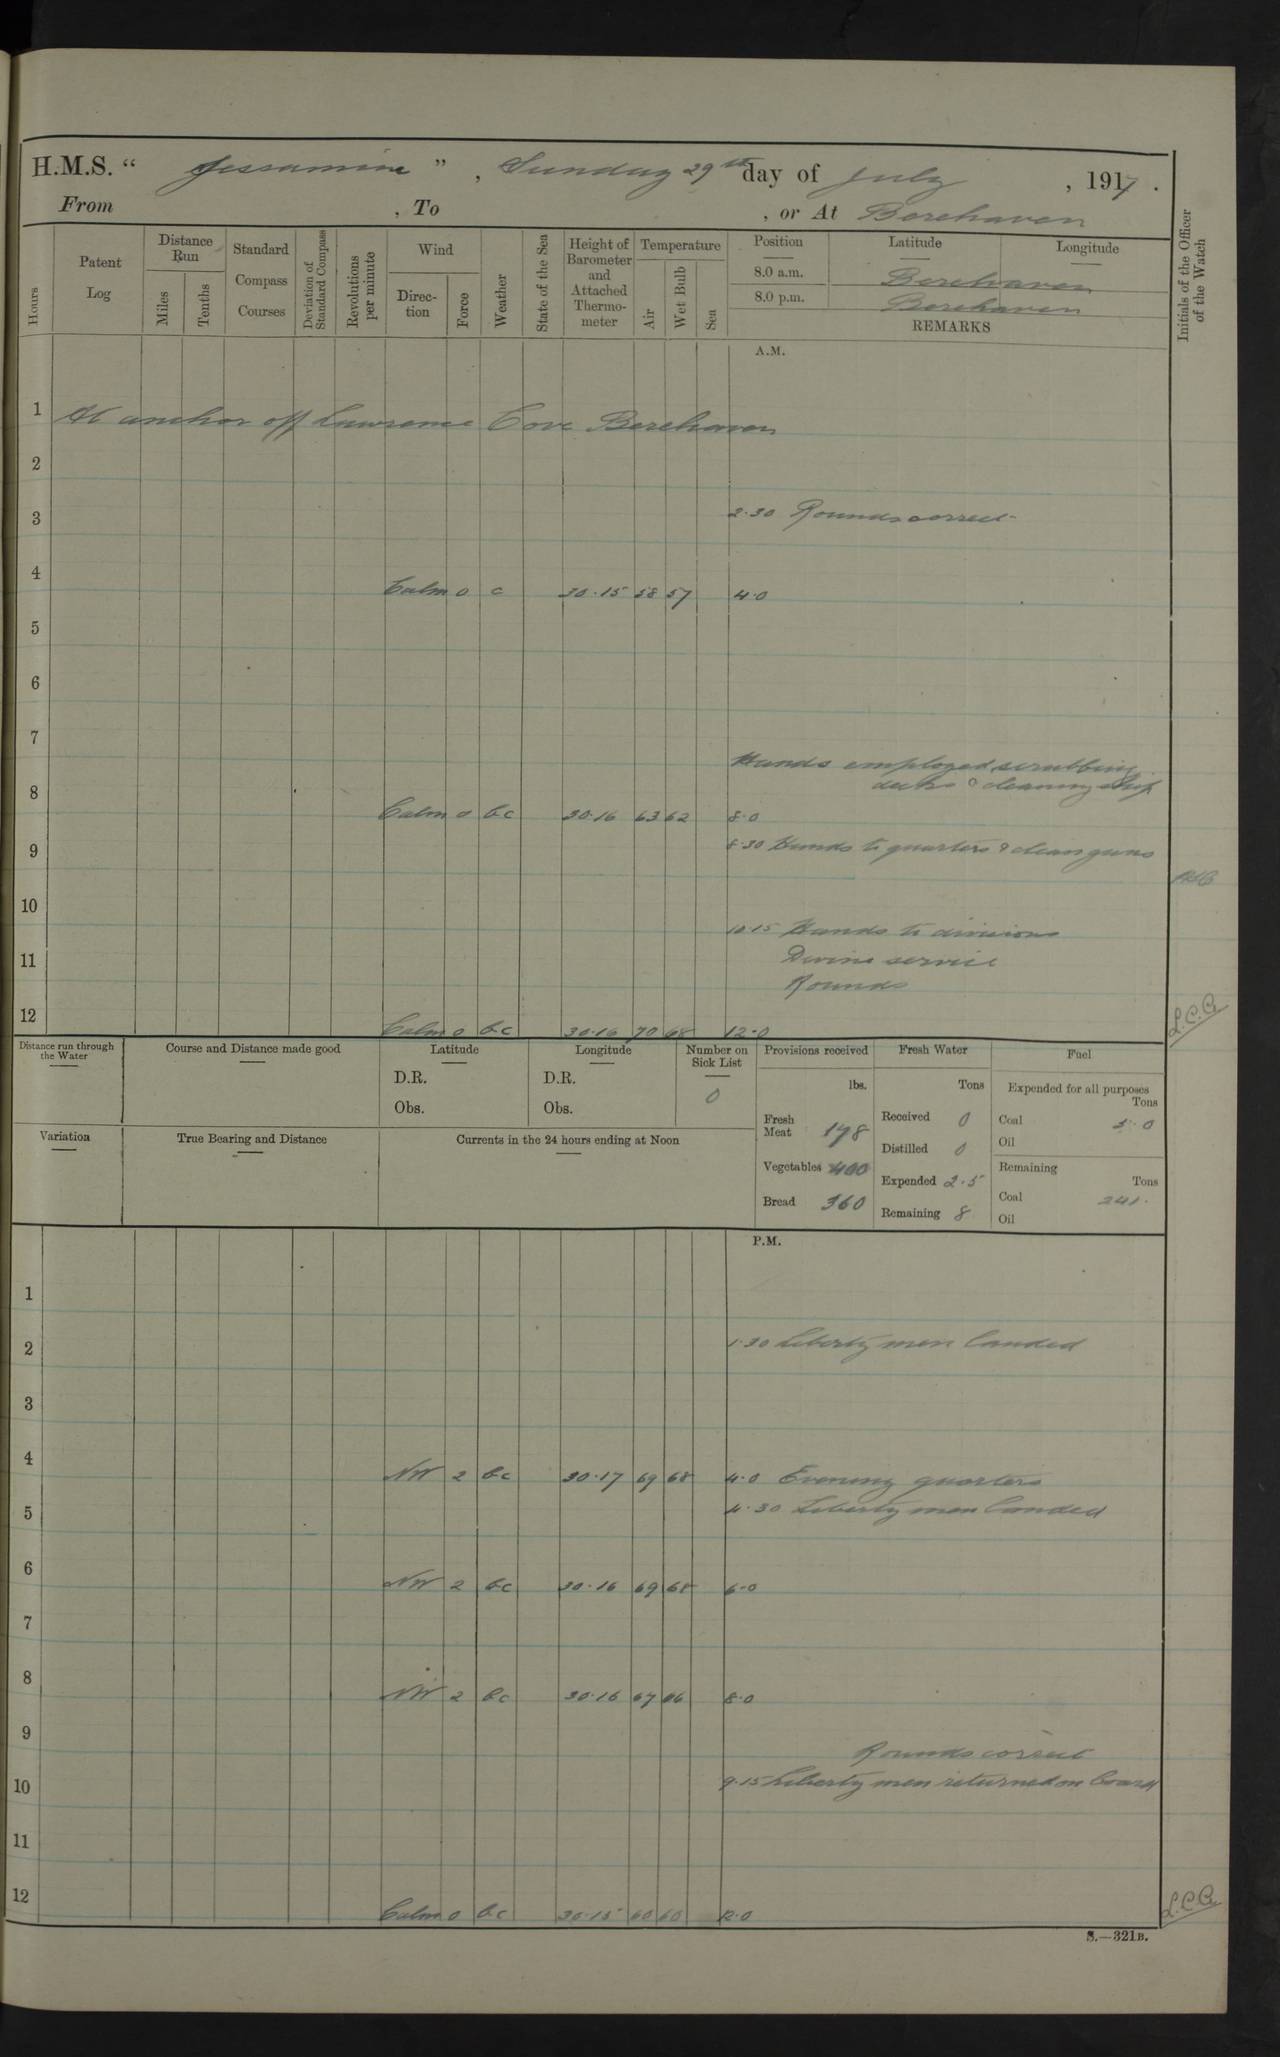 H.M.S. " Jessamine ", Sunday 29th day of July, 1917.
From , To , or At Berehaven
Hours
Patent Log
Distance Run
Miles
Tenths
Standard Compass Courses
Deviation of Standard Compass
Revolutions per minute
Wind
Direction
Force
Weather
State of the Sea
Height of Barometer and Attached Thermometer
Temperature
Air
Wet Bulb
Sea
Position Latitude Longitude
8.0 a.m. Berehaven
8.0 p.m. Berehaven
REMARKS
Initials of the Officer of the Watch
A.M.
1 At anchor off Lawrence Cove Berehaven
2
3 2.30 Rounds correct
4 Calm 0 c 30.15 58 57 4.0
5
6
7
Hands employed scrubbing
decks & cleaning ship
8 Calm 0 bc 30.16 63 62 8.0
9 8.30 Hands to quarters & clean guns
10
10.15 Hands to divisions
11 Divine service
Rounds
12 Calm 0 bc 30.16 70 68 12.0
L.C.C.
Distance run through the Water
Course and Distance made good
Latitude
D.R.
Obs.
Longitude
D.R.
Obs.
Number on Sick List
0
Variation
True Bearing and Distance
Currents in the 24 hours ending at Noon
Provisions received
lbs.
Fresh Meat 178
Vegetables 400
Bread 360
Fresh Water
Tons
Received 0
Distilled 0
Expended 2.5
Remaining 8
Fuel
Expended for all purposes
Tons
Coal 5.0
Oil
Remaining
Tons
Coal 241.
Oil
P.M.
1
2 1.30 Liberty men landed
3
4 NW 2 bc 30.17 69 68 4.0 Evening quarters
5 4.30 Liberty men landed
6 NW 2 bc 30.16 69 68 6.0
7
8 NW 2 bc 30.16 67 66 8.0
9
Rounds correct
10 9.15 Liberty men returned on board
11
12 Calm 0 bc 30.15 60 60 12.0
L.C.C.
S.—321B.